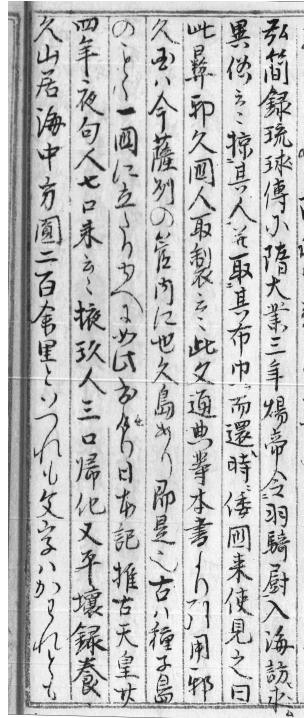 弘簡錄琉球傳小隋大業三年煬帝令羽騎尉入海訪求
異俗云〻掠其人并取其布巾而還時倭國来使見之曰
此彛邪久國人取製云〻此文通典等本書より引用邪
久玉ハ今薩刕の管内に也久島あり即是也古ハ種子島
のことく一國に立たり日本記推古天皇廿
四年〻夜句人七口来云〻掖玖人三口帰化又平壤錄養
久山居海中方圓二百余里といつれも文字ハかわれとも